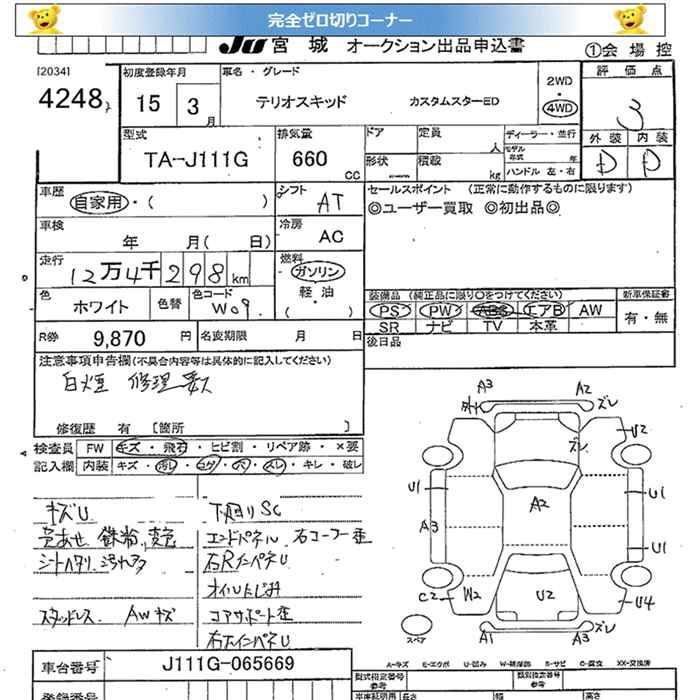 完全ゼロ切りコーナー
JU宮城 オークション出品申込書 ①会場控
[2034]
4248
初度登録年月
15 3月
車名・グレード
テリオスキッド カスタムスターED
2WD・4WD
評価点
3
外装 内装
D D
型式
TA-J111G
排気量
660 CC
ドア
形状
定員 人
積載 kg
ディーラー・並行
モデル年式 年
ハンドル 左・右
車歴
自家用・( )
シフト
AT
セールスポイント (正常に動作するものに限ります)
◎ユーザー買取 ◎初出品◎
車検
年 月( 日)
冷房
AC
走行
12万4千298km
燃料
ガソリン・軽油・( )
色
ホワイト
色替
色コード
W09
装備品 (純正品に限り○をつけてください)
PS PW ABS エアB AW
SR ナビ TV 本革
新車保証書
有・無
R券 9,870円
名変期限 月 日
後日品
注意事項申告欄 (不具合内容等は具体的に記入してください)
白煙 修理要ス
修復歴 有 [箇所 ]
検査員 FW キズ・飛石・ヒビ割・リペア跡・×要
記入欄 内装 キズ・汚レ・コゲ・穴・スレ・キレ・破レ
キズU
色あせ 鉄粉、変色
シートヘタリ 汚れ多
スタッドレス AWキズ
下廻りSC
エンドパネル 右コーナー歪
右RインパネU
オイルにじみ
コアサポート歪
右FインパネU
A3 A2
外ト ズレ
U2
ズレ
U1 A2 U1
A3
U1
C2 W2 U2 U4
スペア
A1 A3 ズレ
A-キズ E-エクボ U-凹み W-補修跡 S-サビ C-腐食 XX-交換済
車台番号 J111G-065669
型式指定番号 参考
類別区分番号 参考
登録番号
車庫証明用 長さ 幅 高さ